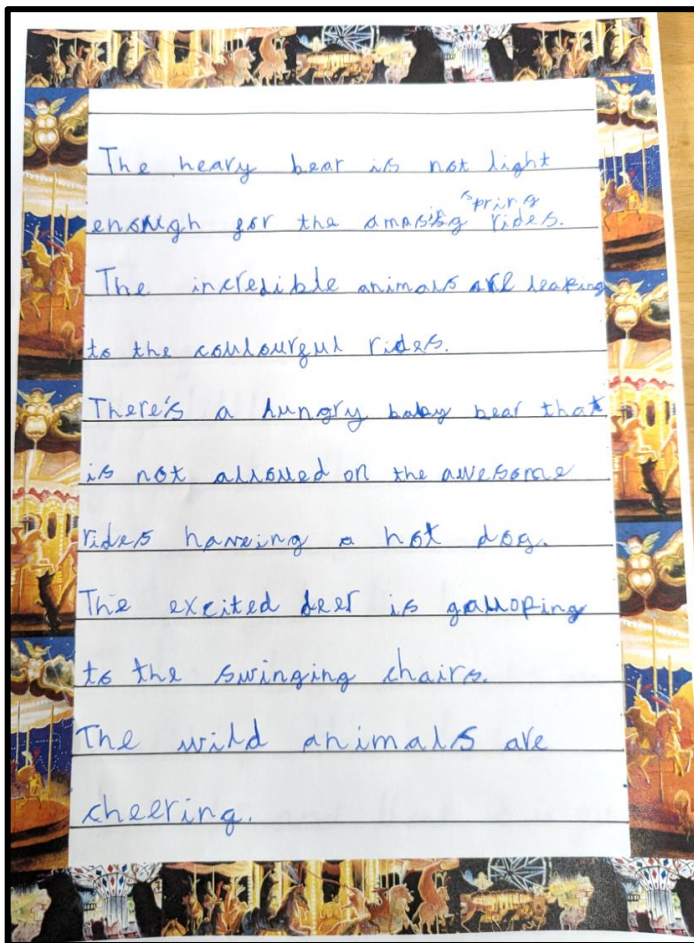 The heavy bear is not light
enough for the amasing spring rides.
The incredible animals are leaping
to the coulourful rides.
There's a hungry baby bear that
is not allowed on the awesome
rides haveing a hot dog.
The excited deer is galloping
to the swinging chairs.
The wild animals are
cheering.